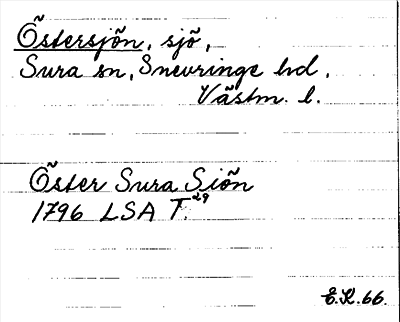 Östersjön, sjö,
Sura sn, Snevringe hd,
Västm. l.
Öster Sura Siön
1796 LSA T.29
E.K.66.